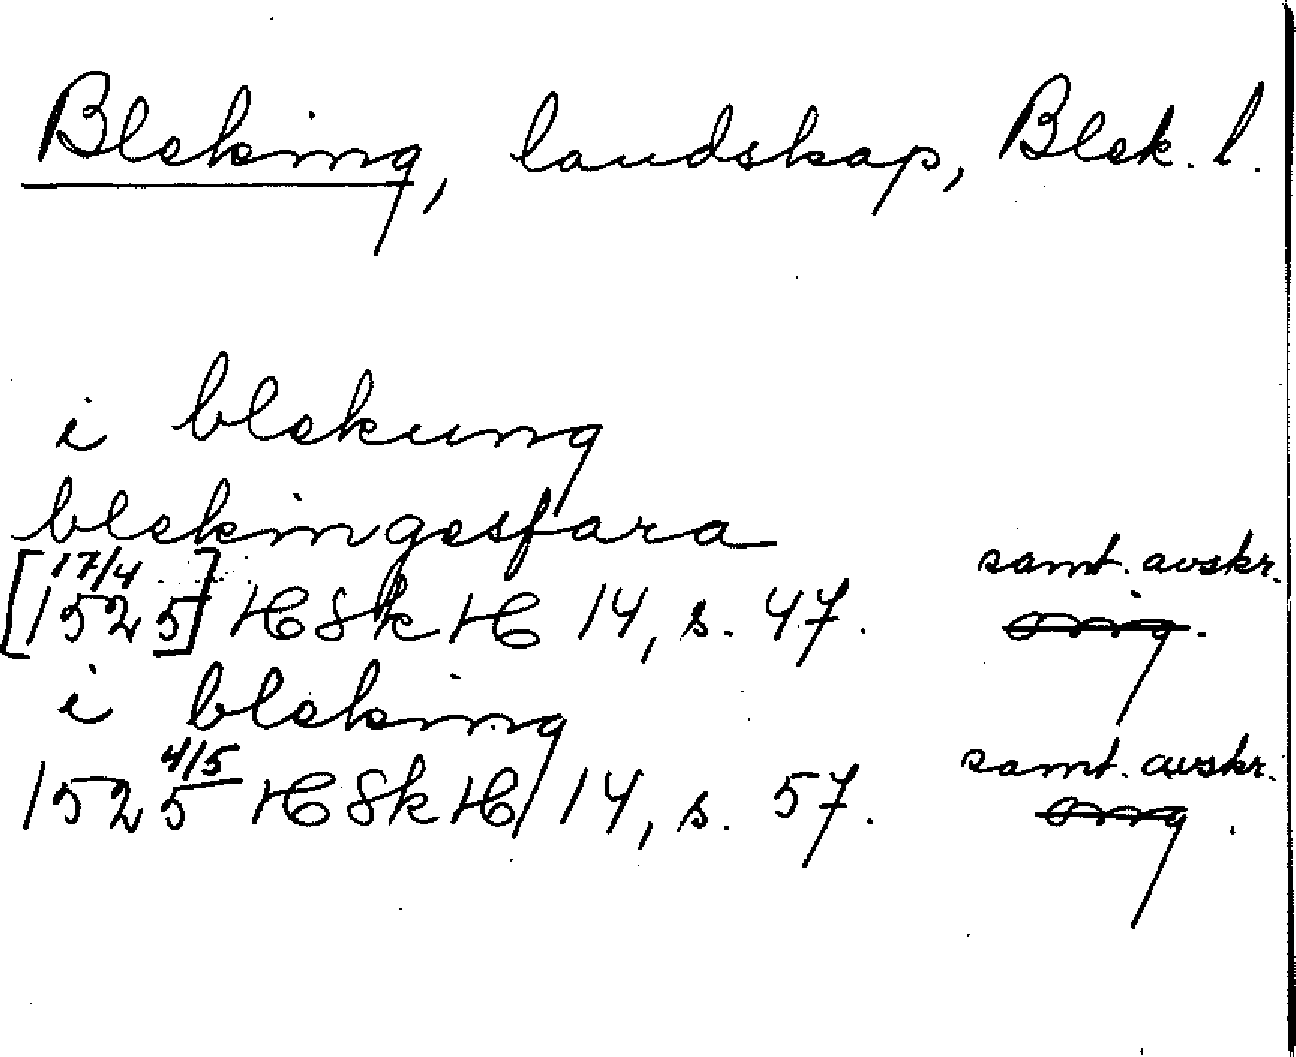 Bleking, landskap, Blek. l.
i blekung
blekingesfara
[17/4 1525] HSkH 14, s. 47. samt. avskr. orig.
i bleking
1525 4/5 HSkH 14, s. 57. samt. avskr. orig.